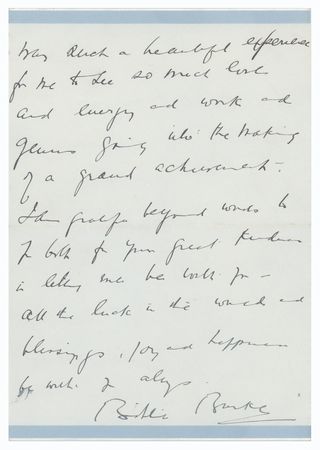 was such a beautiful experience
for me to see so much love
and energy and work and
genius going into the making
of a grand achievement –
I am grateful beyond words to
both for your great kindness
in letting me be with you –
all the luck in the world and
blessings, joy and happiness
be with you always
Billie Burke